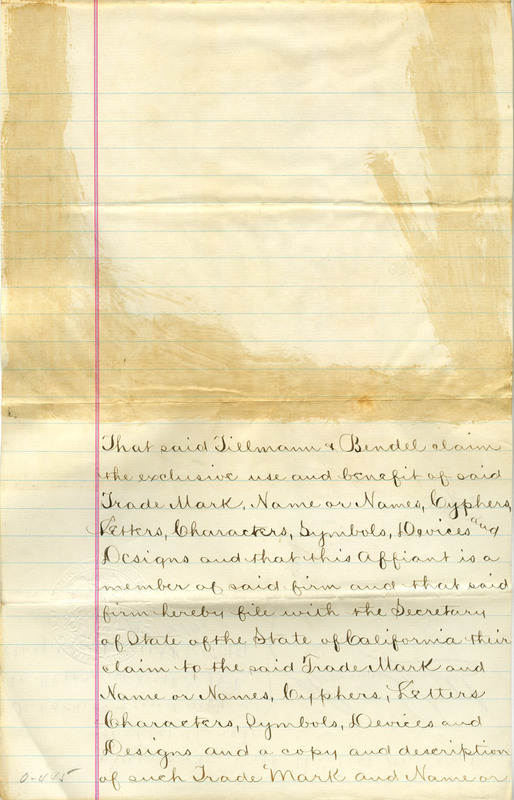 That said Tillmann & Bendel claim
the exclusive use and benefit of said
Trade Mark, Name or Names, Cyphers,
Letters, Characters, Symbols, Devices and
Designs and that this Affiant is a
member of said firm and that said
firm hereby file with the Secretary
of State of the State of California their
claim to the said Trade Mark and
Name or Names, Cyphers, Letters
Characters, Symbols, Devices and
Designs and a copy and description
of such Trade Mark and Name or
0-445